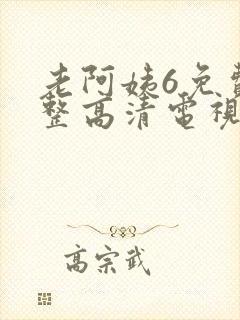 老阿姨6免費
整高清電視
高宗武